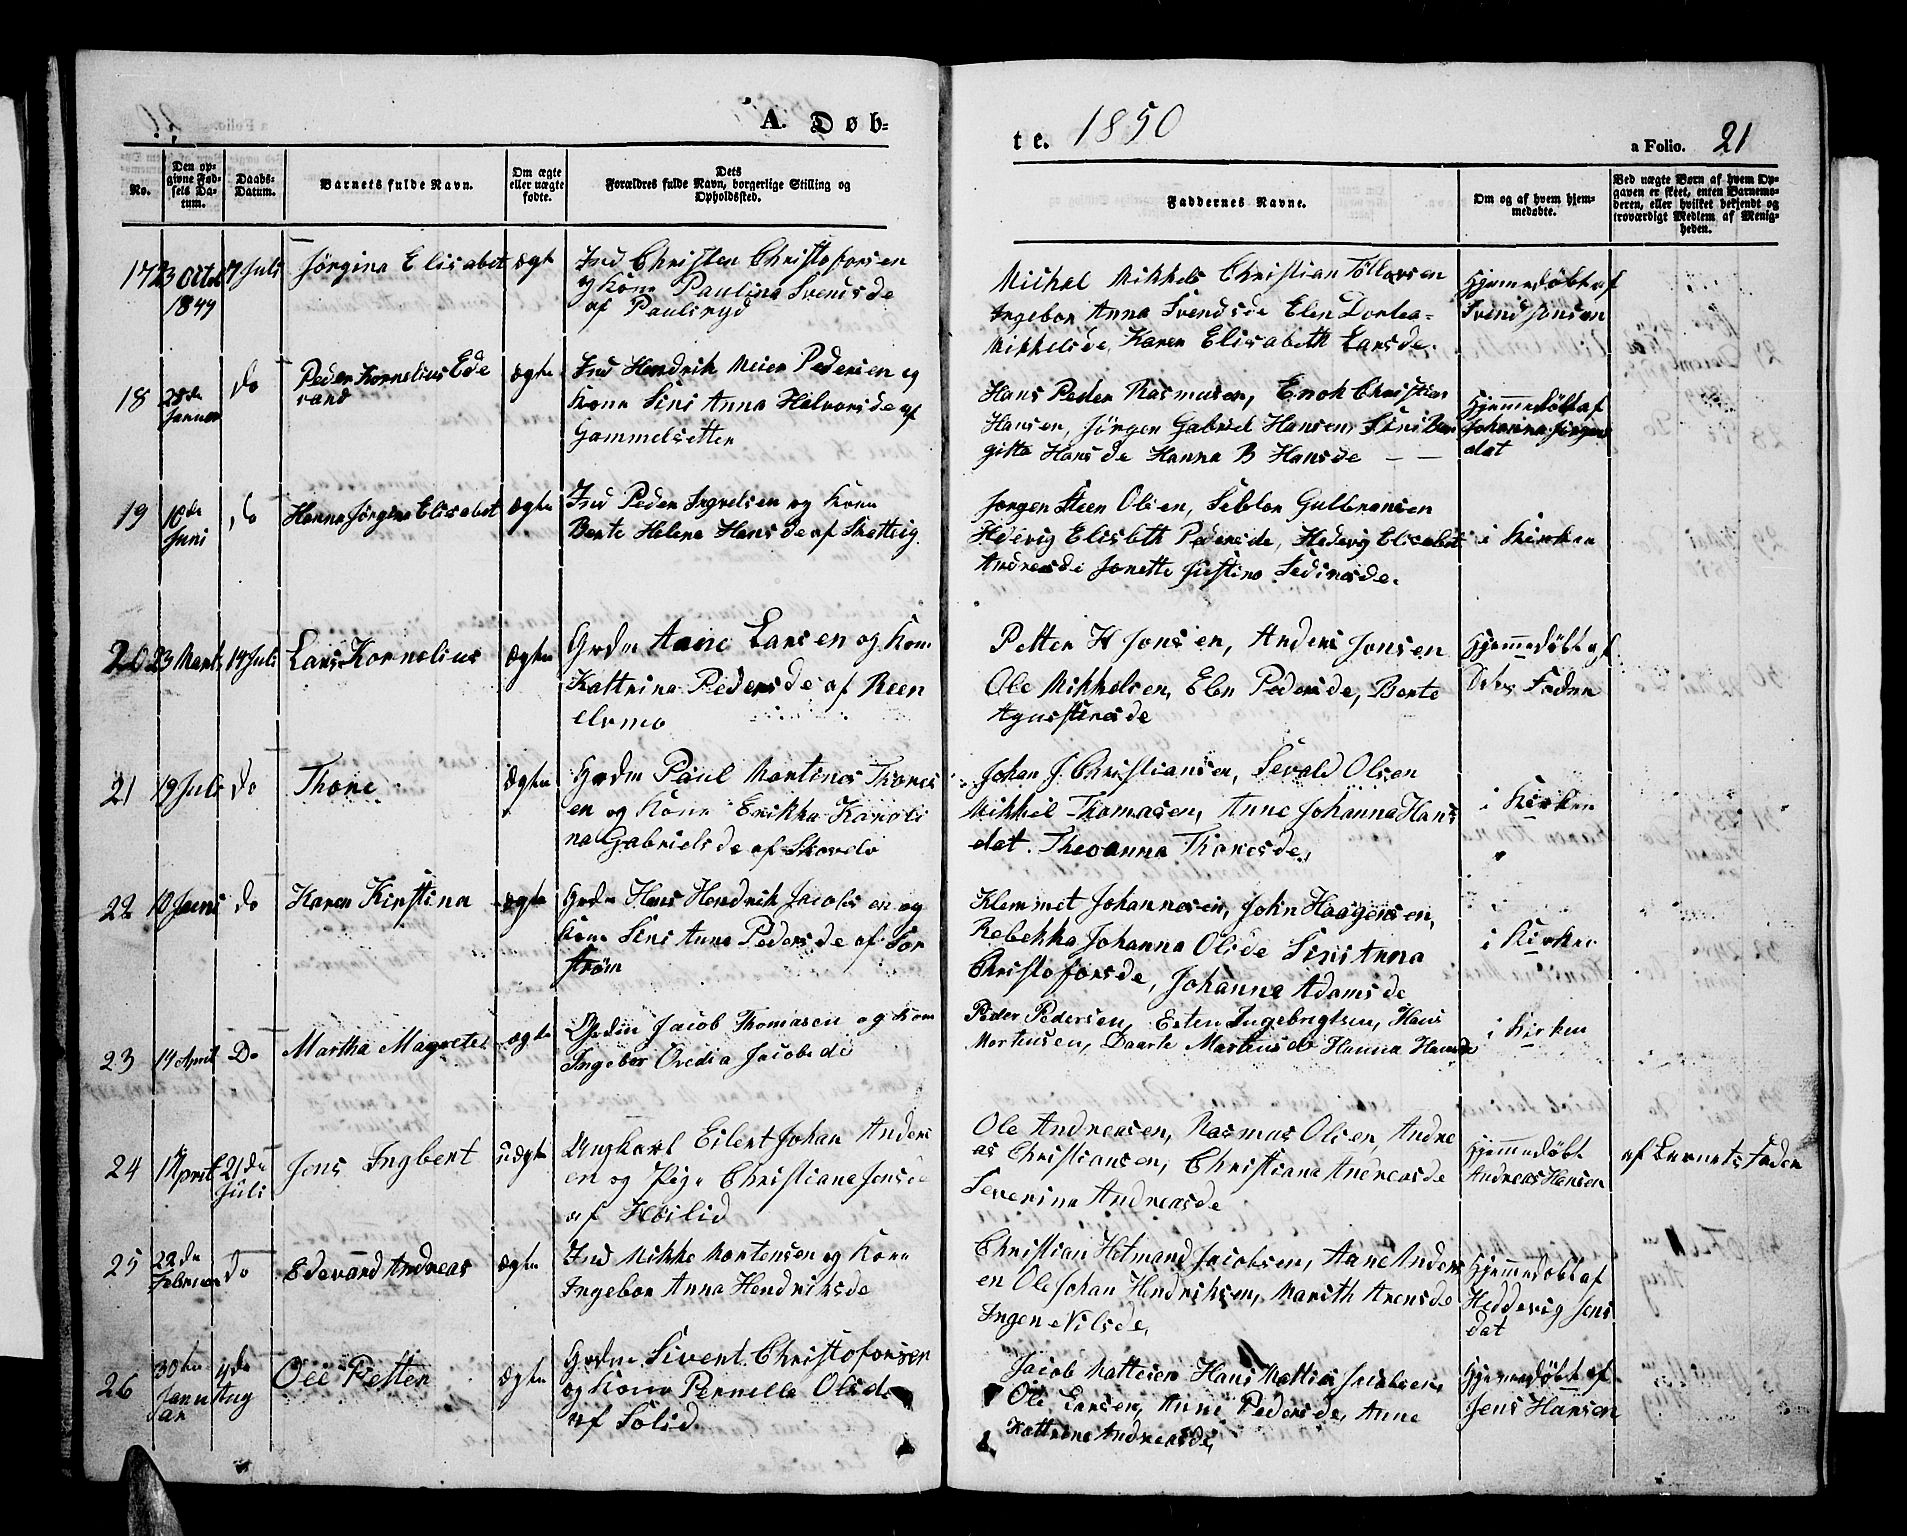 A. Døb-
te. 1850
a Folio. 21
No.
Den op-
givne Fød-
sels Da-
tum.
Daabs-
Datum.
Barnets fulde Navn.
Om ægte
eller uægte
fødte.
Dets
Forældres fulde Navn, borgerlige Stilling og
Opholdssted.
Faddernes Navne.
Om og af hvem hjem-
medøbte.
Ved uægte Børn af hvem Op-
gaven er skeet, enten Barnemo-
deren, eller hvilket bekjendt og
troværdigt Medlem af Menig-
heden.
17
23 Octob
1849
7 Juli
Jørgina Elisabet
ægt
Ind Christen Christoforsen
og Kone Paulina Svendsde
af Paulsryd
Michal Mikkels Christian Tollarsen
Ingebor Anna Svendsde Elen Dortea
Mikkelsde, Karen Elisabeth Larsde.
Hjemedøbt af
Svend Jonsen
18
28de
Januar
do
Peder Kornelius Ede
vard
ægte
Ind Hendrik Meier Pedersen og
Kone Sini Anna Halvorsde af
Gammelsetter
Hans Peder Rasmusen, Enok Christian
Hansen, Jörgen Gabriel Hansen, Sini Ber
gitte Hansde Hanna B Hansde
Hjemmedøbt af
Johanna Jörgens
dat
19
10de
Juni
do
Hanna Jörgina Elisabet
ægte
Ind Peder Ingvelsen og Kone
Berte Helena Hansde af Skatvig
Jorgen Steen Olsen, Seblon Gulbransen
Hdevig Elisbth Pedersde, Hedevig Elisabet
Andreasde Jonette Justina Sedinsde.
i Kirken
20
23 Marts
14 Juli
Lars Kornelius
ægte
Grdm Aane Larsen og Kone
Kattrina Pedersde af Reen
elvmo
Petter H Jonsen, Anders Jonsen
Ole Mikkelsen, Elen Pedersde, Berte
Agustinesde
Hjemmedøbt af
Dets Fader
21
19 Juli
do
Thore
ægte
Grdm Paul Martines Thores
en og Kone Erikka Karoli
na Gabrielsde af Skovelv
Johan J. Christiansen, Sevald Olsen
Mikkel Thomasen, Anne Johanna Hans
dat. Theoanna Thoresde,
i Kirken
22
10 Juni
do
Karen Kirstina
ægte
Grdm Hans Hendrik Jacobsen og
Kone Sini Anna Pedersde af Sør
strøm
Klemmet Johannesen, John Haagensen,
Rebekka Johanna Olsde Sini Anna
Christoforsde, Johanna Adamsde
i Kirken
23
14 April
Do
Martha Magrete
ægte
Grdm Jacob Thomasen og Kone
Ingebor Ovedia Jacobsde
Peder Pedersen, Esten Ingebrigtsen, Hans
Mortensen, Daarte Martinsde Hanna Hansde
i Kirken
24
1 April
21de
Juli
Jens Ingbert
uægte
Ungkarl Eilert Johan Anders
en og Pige Christiana Jensde
af Høilid
Ole Andreasen, Rasmus Olsen, Andre
as Christiansen, Christiana Andreasde
Severina Andreasde
Hjemmedøbt
Andreas Hansen
af Barnets Fader
25
22de
Februar
do
Edevard Andreas
ægte
Ind Mikke Mortensen og Kone
Ingebor Anna Hendriksde
Christian Hetmand Jacobsen, Aane Anders
en Ole Johan Hendriksen, Marith Arensde
Ingen Nilsde,
Hjemedøbt af
Heddevig Jens
dat
26
30te
Janu
ar
4de
Aug
Ole Petter
ægte
Grdm Sivert Christoforsen
og Kone Pernella Olsde
af Solid
Jacob Mattisen Hans Mattias Jacobsen,
Ole Larsen, Anne Pedersde, Anne
Kattrine Andreasde,
Hjemedøbt af
Jens Hansen